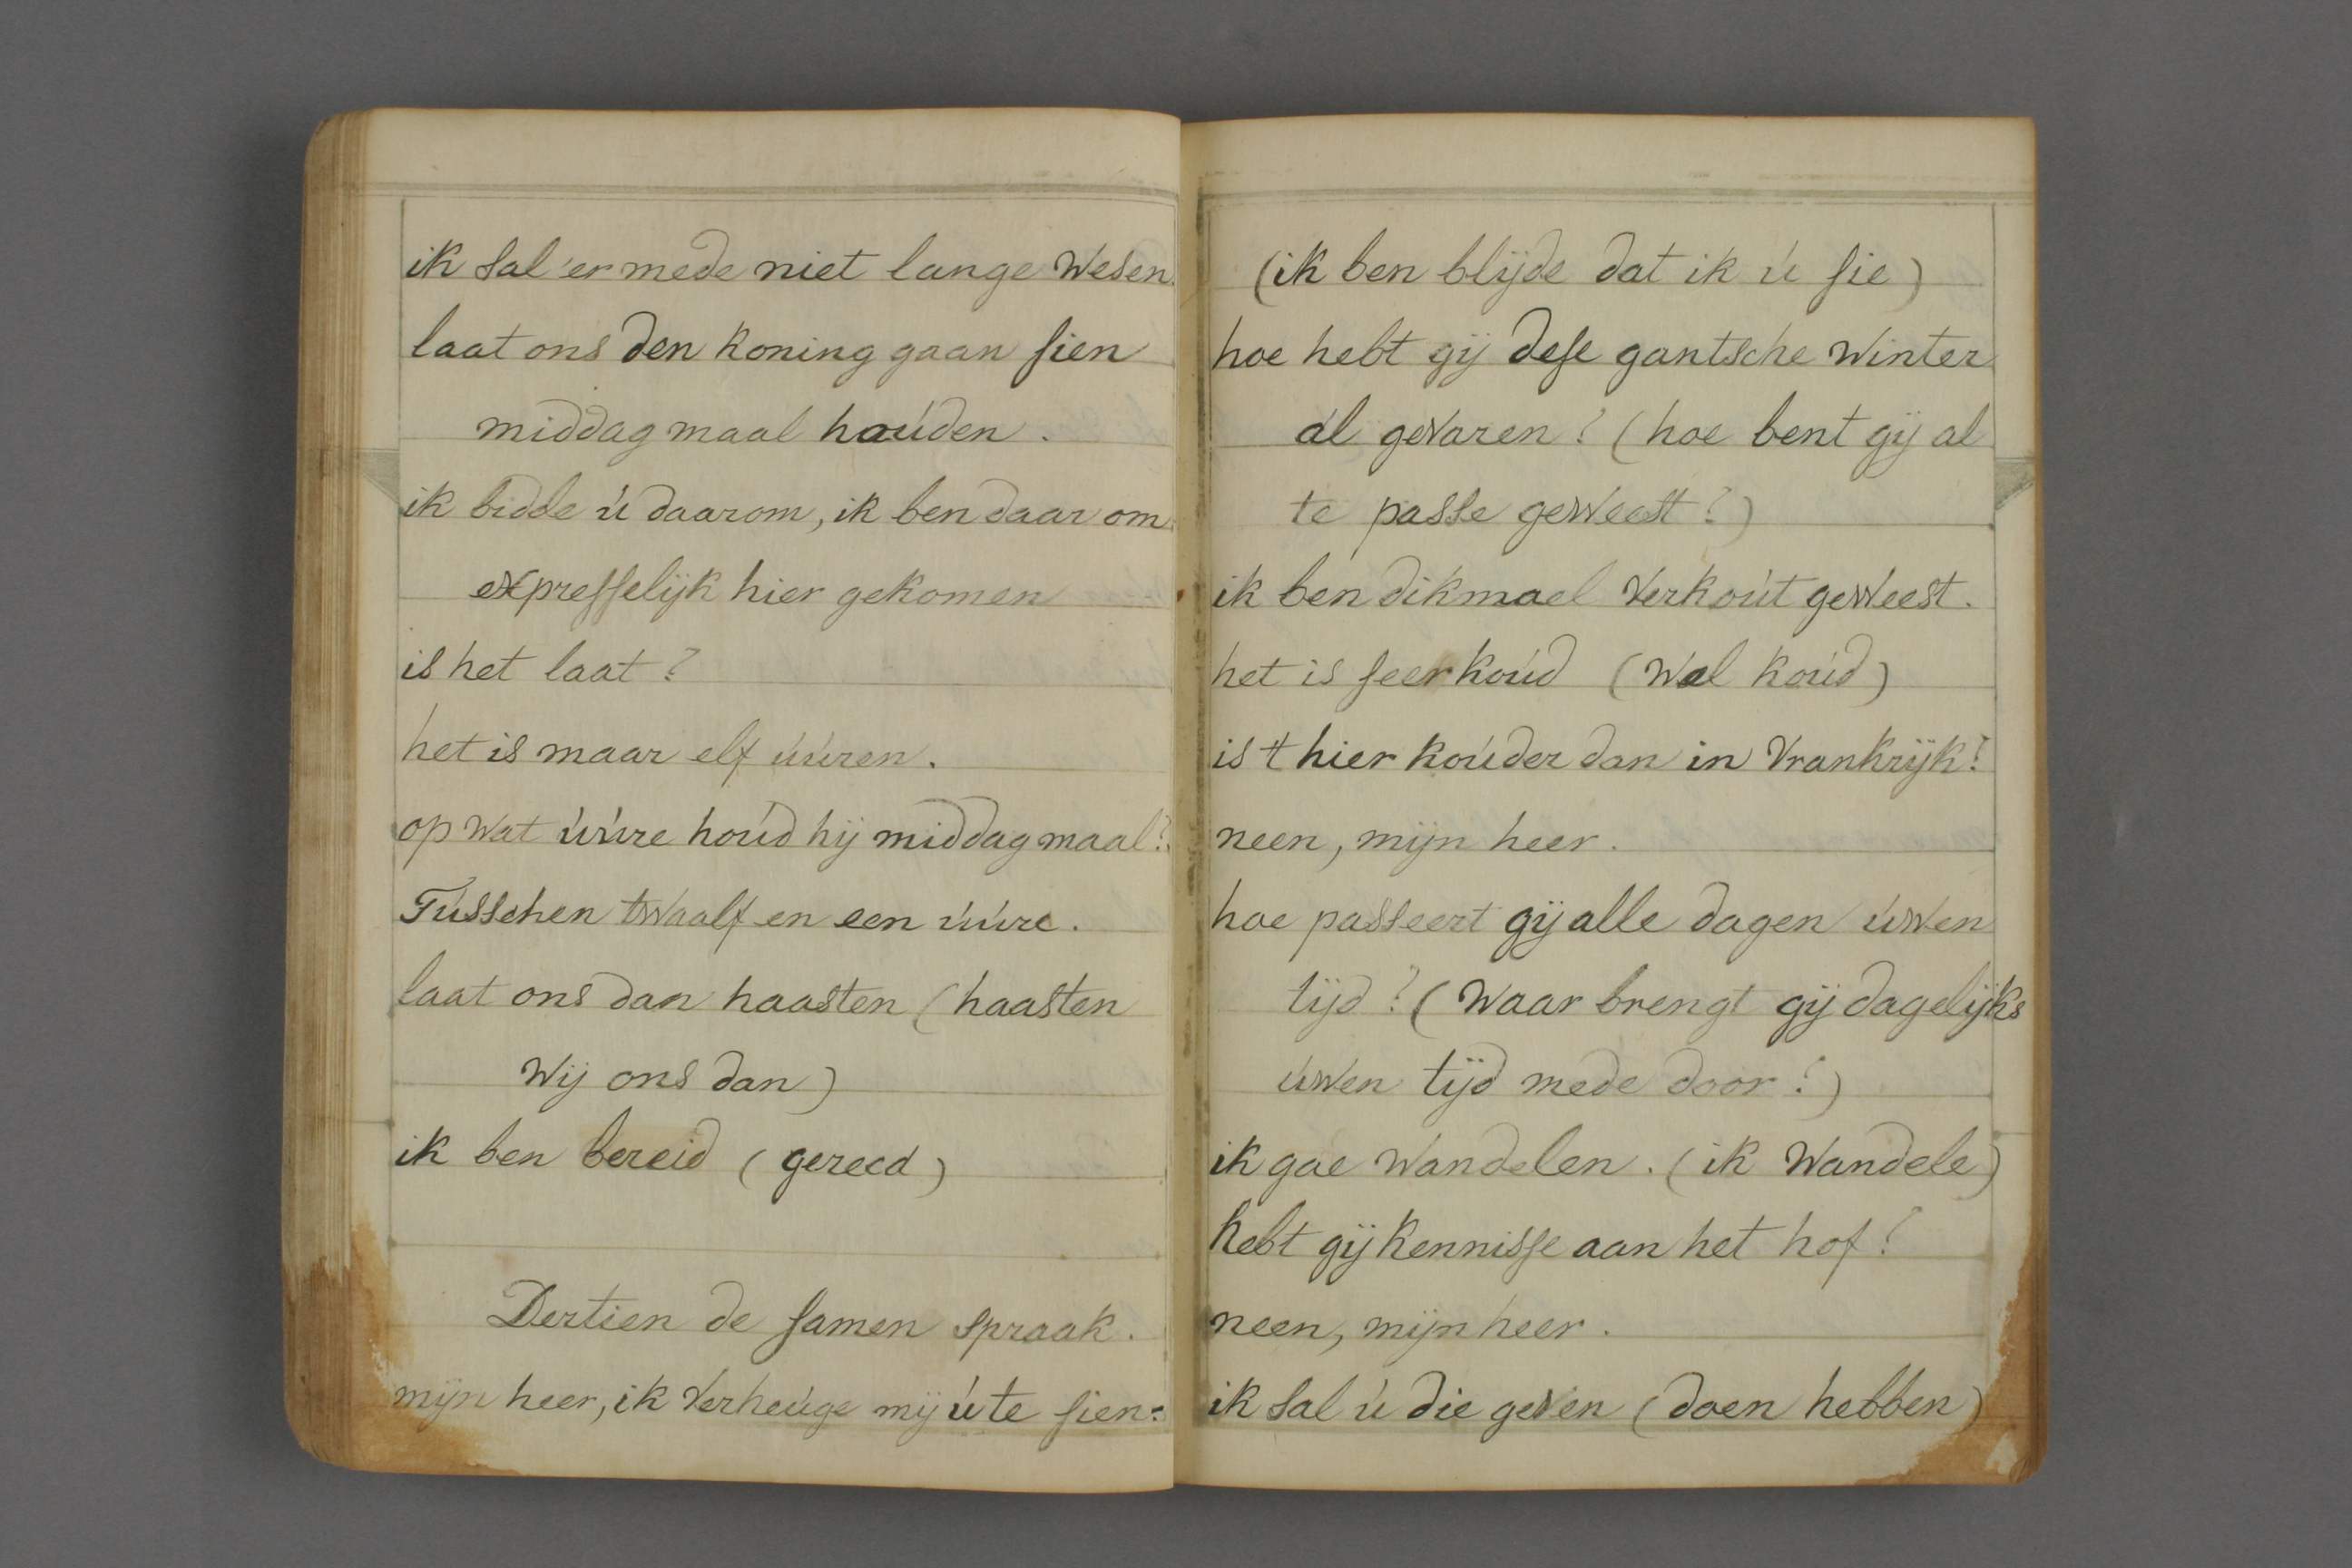 ik sal 'er mede niet lange wesen.
laat ons den koning gaan sien
middag maal houden.
ik bidde ú daarom, ik ben daar om
expresselijk hier gekomen
is het laat?
het is maar elf úúren.
op wat úúre houd hij middag maal?
Tússchen twaalf en een úúre.
laat ons dan haasten (haasten
wij ons dan)
ik ben bereid (gereed)
Dertien de samen spraak.
mijn heer, ik verheúge mij ú te sien:
(ik ben blijde dat ik ú sie)
hoe hebt gij dese gantsche winter
al gevaren? (hoe bent gij al
te passe geweest?)
ik ben dikmael verkoút geweest.
het is seer koúd (wel koúd)
is 't hier koúder dan in Vrankrijk?
neen, mijn heer.
hoe passeert gij alle dagen úwen
tijd? (waar brengt gij dagelijks
úwen tijd mede door?)
ik gae wandelen. (ik wandele)
hebt gij kennisse aan het hof?
neen, mijn heer.
ik sal ú die geven (doen hebben)